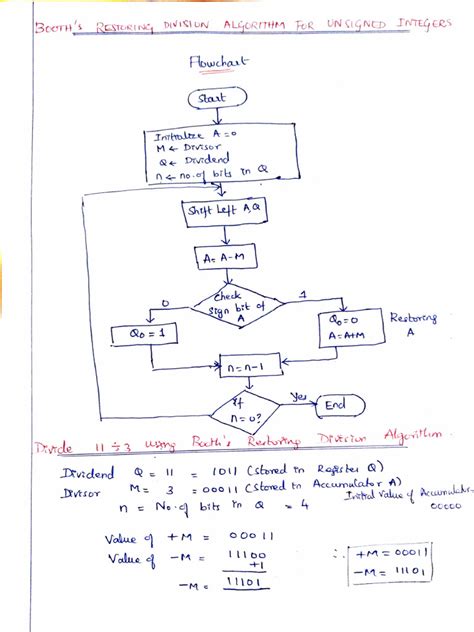 BOOTH'S RESTORING DIVISION ALGORITHM FOR UNSIGNED INTEGERS
Flowchart
Start
Initialize A=0
M ← Divisor
Q ← Dividend
n ← no. of bits in Q
Shift Left A,Q
A = A-M
Check
sign bit of
A
0
1
Q0 = 1
Q0 = 0
A = A+M
Restoring
A
n = n-1
If
n = 0?
Yes
End
Divide 11 ÷ 3 using Booth's Restoring Division Algorithm.
Dividend Q = 11 = 1011 (stored in Register Q)
Divisor M = 3 = 00011 (stored in Accumulator A)
n = No. of bits in Q = 4
Initial value of Accumulator.
00000
Value of +M = 00011
Value of -M = 11100
+1
-M = 11101
∴ +M = 00011
-M = 11101